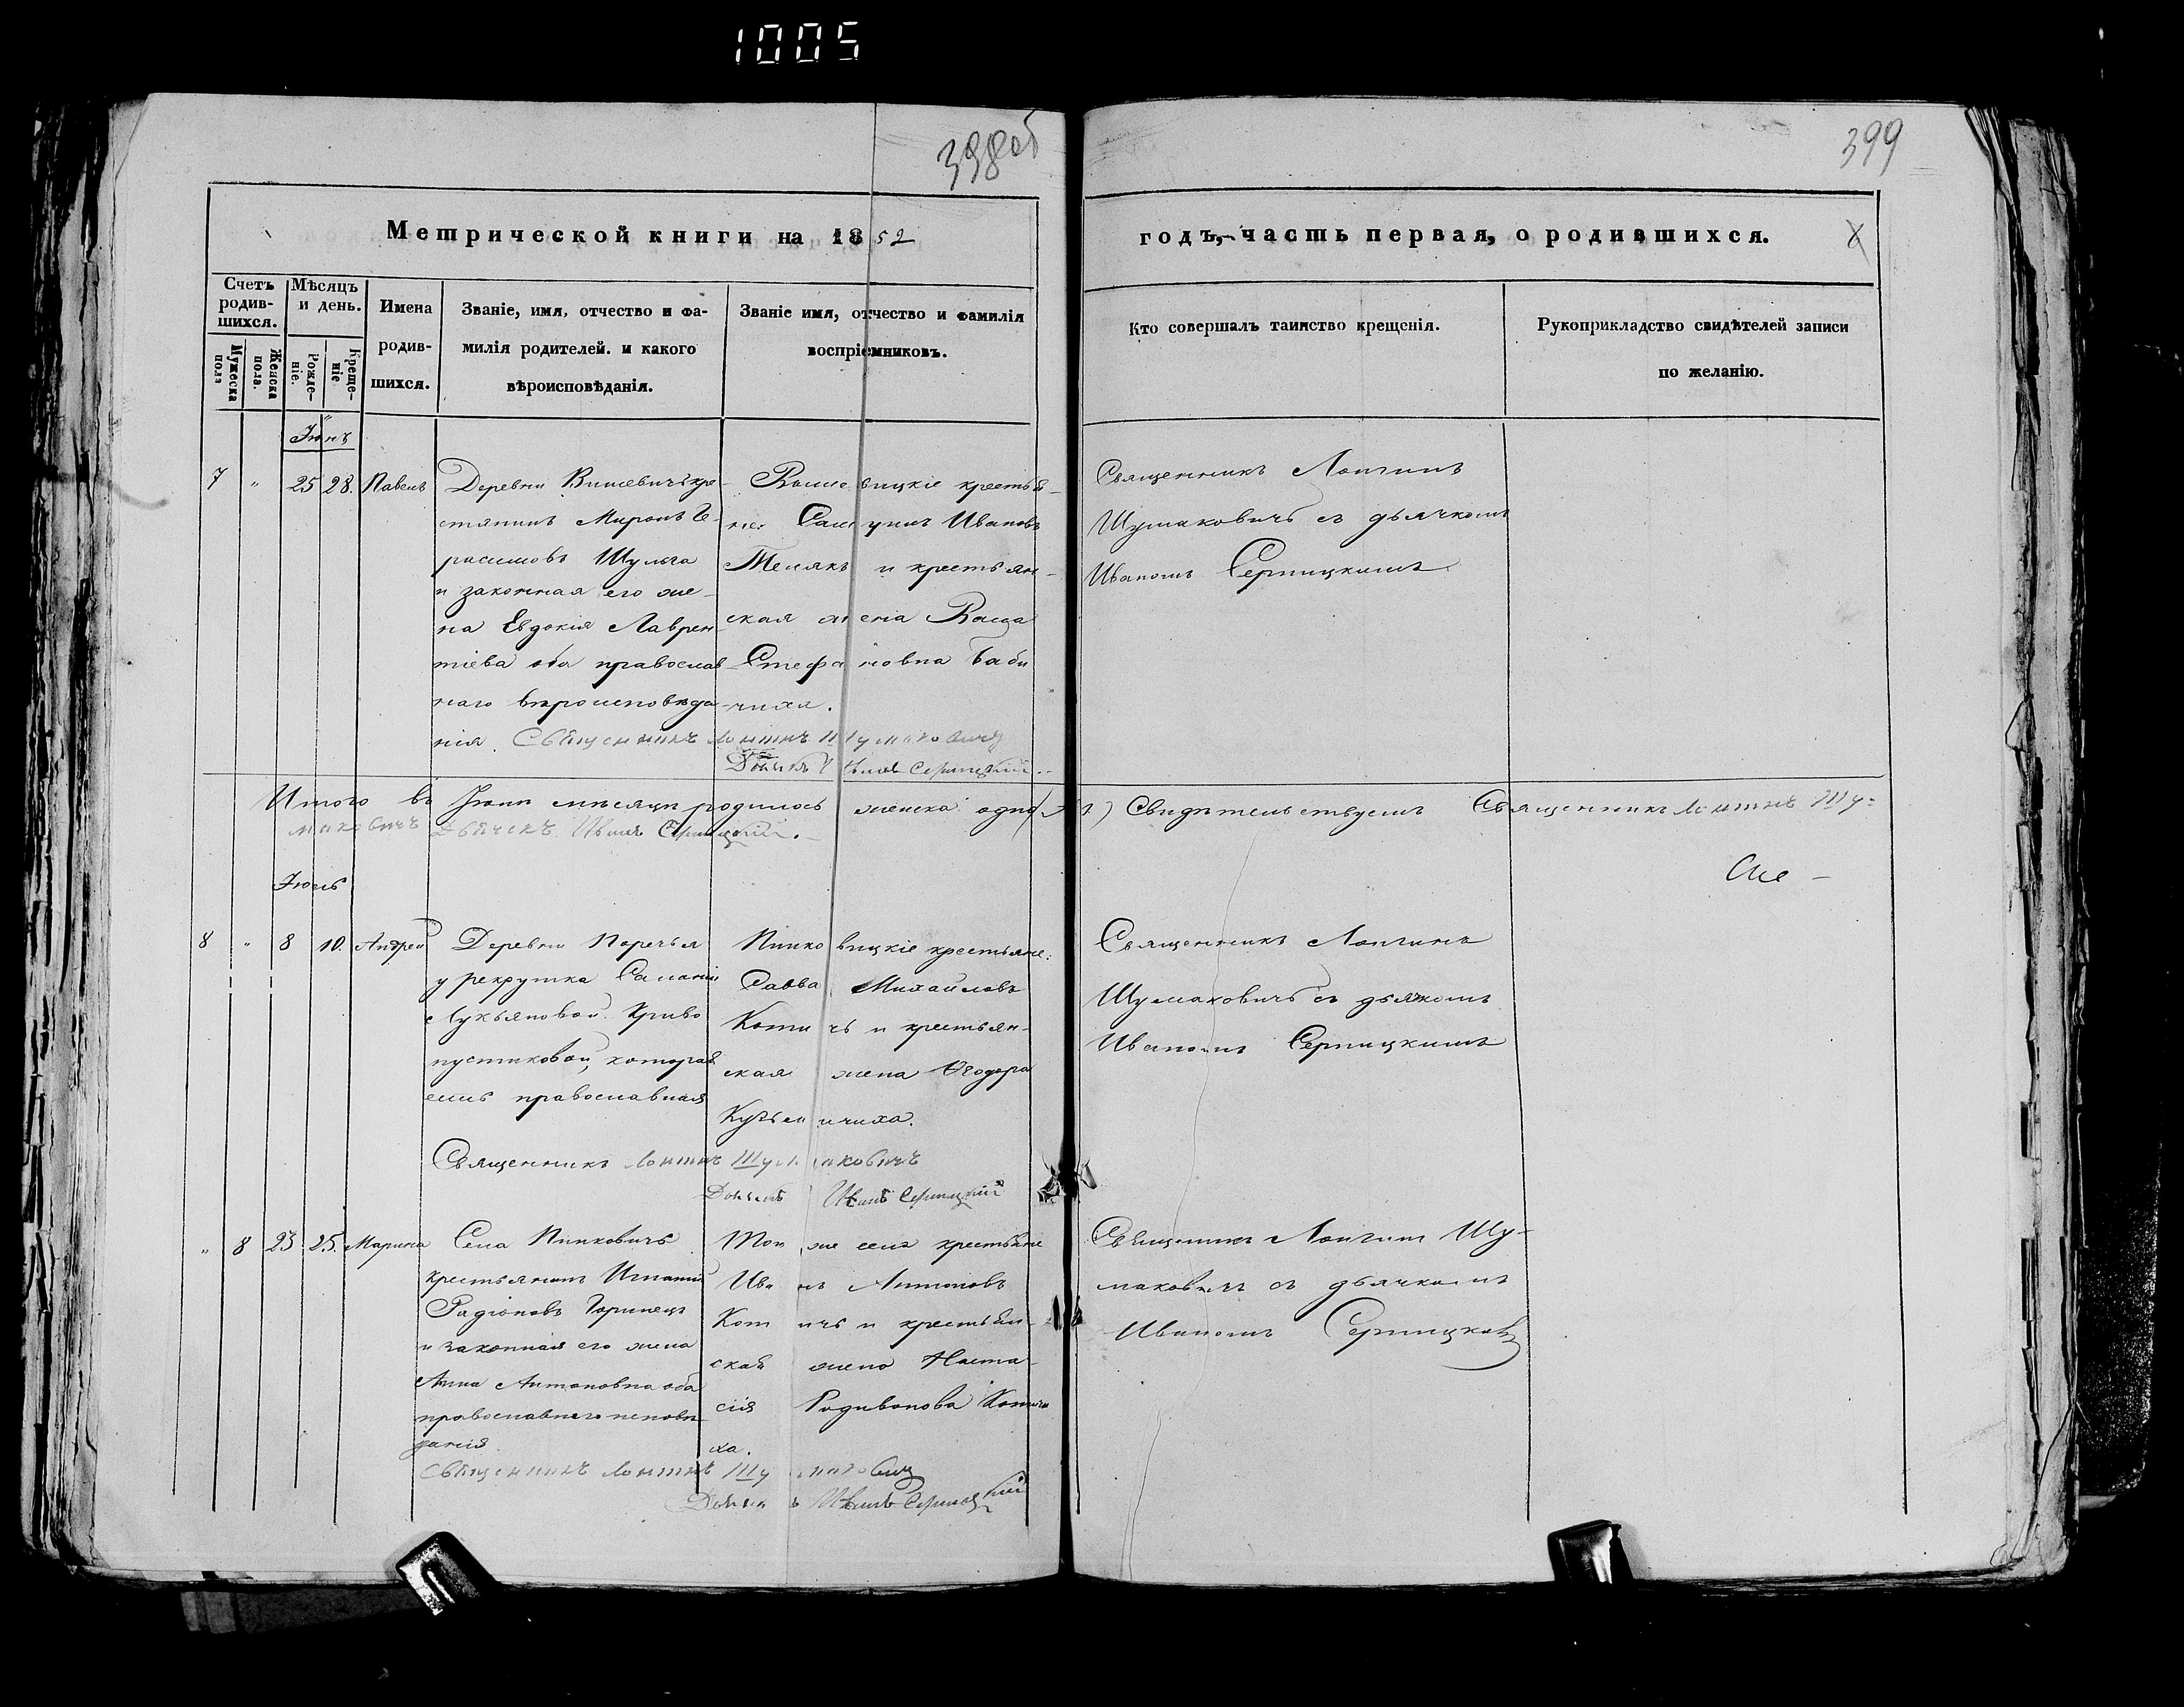 1005
398 об
399
Метрической книги на 1852
годъ,-часть первая, о родившихся.
Счетъ родив-шихся.
Мѣсяцъ и день.
Имена родив-шихся.
Званіе, имя, отчество и фа-
милія родителей. и какого
вѣроисповѣданія.
Званіе имя, отчество и фамилія
воспріемниковъ.
Кто совершалъ таинство крещенія.
Рукоприкладство свидѣтелей записи
по желанію.
Мужеска пола
Женска пола.
Рожде-ніе.
Креще-ніе
Іюнь
7 " 25 28. Павелъ
Деревни Вишевичъ кре-
стянинъ Миронъ Ге-
расимовъ Шульга
и законная его же-
на Евдокія Лаврен-
тіева оба православ-
наго вѣроисповѣда-
нія. Священникъ Лонгинъ Шумаковичъ
Дьячекъ Иванъ Серницкій.
вицкіе крестья-
не: Иванов
и крестьян-
ская жена
Стефановна Баби
чиха.
Священникъ Лонгинъ
Шумаковичъ съ дьячкомъ
Иваномъ Серницкимъ
Итого въ Іюнѣ мѣсяцѣ родилось женска: одно (1.) Свидѣтельствуемъ Священникъ Лонгинъ Шу=
маковичъ Дьячекъ Иванъ Серницкій.
Іюль
8 " 8 10. Андрей
Деревни Поречья
у рекрутка
Лукьяновой Криво
пустиковой, которая
есть православная
Пинковицкіе крестьяне:
Савва Михайловъ
Котичъ и крестьян-
ская жена Ѳеодора
Кузьмичиха.
Священникъ Лонгинъ Шумаковичъ
Дьячекъ Иванъ Серницкій
Священникъ Лонгинъ
Шумаковичъ съ дьячкомъ
Иваномъ Серницкимъ
" 8 23 25. Марина
Села Пинковичъ
крестьянинъ Игнатій
Радіоновъ Горинецъ
и законная его жена
Анна Антоновна оба
православнаго исповѣ
данія.
Священникъ Лонгинъ Шумаковичъ
Дьячекъ Иванъ Серницкій
Того же села крестьяне
Иванъ Антоновъ
Котичъ и крестьян-
ская жена Наста-
сія Родивонова Котичи
ха.
Священникъ Лонгинъ Шу-
маковичъ съ дьячкомъ
Иваномъ Серницким